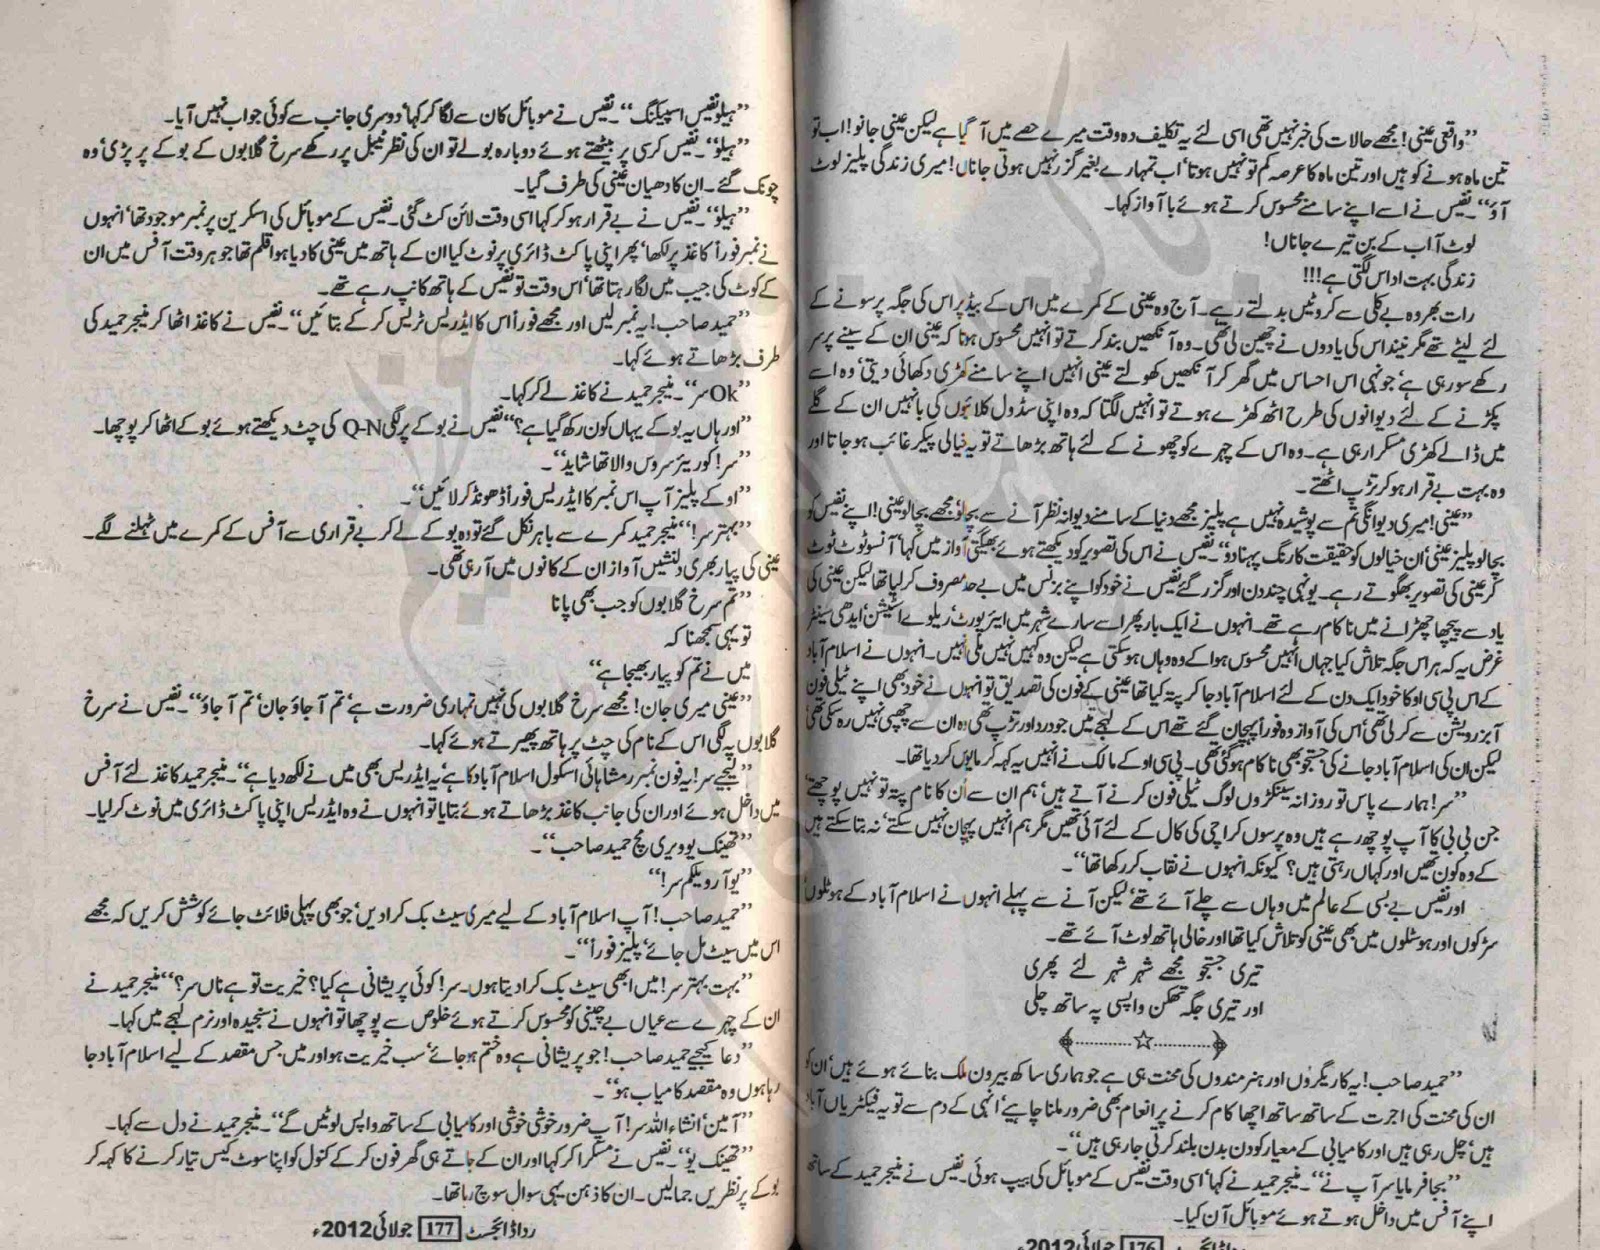 ”واقعی عینی! مجھے حالات کی خبر نہیں تھی اسی لئے یہ تکلیف دہ وقت میرے حصے میں آ گیا ہے لیکن عینی جانو! اب تو
تین ماہ ہونے کو ہیں اور تین ماہ کا عرصہ کم تو نہیں ہوتا‘ اب تمہارے بغیر گزر نہیں ہوتی جاناں! میری زندگی پلیز لوٹ
آؤ“۔ نفیس نے اسے اپنے سامنے محسوس کرتے ہوئے با آواز کہا۔
لوٹ آ اب کے بن تیرے جاناں!
زندگی بہت اداس لگتی ہے!!!
رات بھر وہ بے کلی سے کروٹیں بدلتے رہے۔ آج وہ عینی کے کمرے میں اس کے بیڈ پر اس کی جگہ پر سونے کے
لئے لیٹے تھے مگر نیند اس کی یادوں نے چھین لی تھی۔ وہ آنکھیں بند کرتے تو انہیں محسوس ہوتا کہ عینی ان کے سینے پر سر
رکھے سو رہی ہے‘ جونہی اس احساس میں گھر کر آنکھیں کھولتے عینی انہیں اپنے سامنے کھڑی دکھائی دیتی‘ وہ اسے
پکڑنے کے لئے دیوانوں کی طرح اٹھ کھڑے ہوتے تو انہیں لگتا کہ وہ اپنی سڈول کلائیوں کی بانہیں ان کے گلے
میں ڈالے کھڑی مسکرا رہی ہے۔ وہ اس کے چہرے کو چھونے کے لئے ہاتھ بڑھاتے تو یہ خیالی پیکر غائب ہو جاتا اور
وہ بہت بے قرار ہو کر تڑپ اٹھتے۔
”عینی! میری دیوانگی تم سے پوشیدہ نہیں ہے پلیز مجھے دنیا کے سامنے دیوانہ نظر آنے سے بچا لو‘ مجھے بچا لو عینی! اپنے نفیس کو
بچا لو پلیز عینی‘ ان خیالوں کو حقیقت کا رنگ پہنا دو“۔ نفیس نے اس کی تصویر کو دیکھتے ہوئے بھیگتی آواز میں کہا‘ آنسو ٹوٹ ٹوٹ
کر عینی کی تصویر بھگوتے رہے۔ یونہی چند دن اور گزر گئے نفیس نے خود کو اپنے بزنس میں بے حد مصروف کر لیا تھا لیکن عینی کی
یاد سے پیچھا چھڑانے میں ناکام رہے تھے۔ انہوں نے ایک بار پھر اسے سارے شہر میں ایئر پورٹ‘ ریلوے اسٹیشن‘ ایدھی سینٹر
غرض یہ کہ ہر اس جگہ تلاش کیا جہاں انہیں محسوس ہوا کے وہ وہاں ہو سکتی ہے لیکن وہ کہیں نہیں ملی انہیں۔ انہوں نے اسلام آباد
کے اس پی سی او کا خود ایک دن کے لئے اسلام آباد جا کر پتہ کیا تھا عینی کے فون کی تصدیق تو انہوں نے خود بھی اپنے ٹیلی فون
آبزرویشن سے کر لی تھی‘ اس کی آواز وہ فوراً پہچان گئے تھے اس کے لہجے میں جو درد اور تڑپ تھی وہ ان سے چھپی نہیں رہ سکی تھی
لیکن ان کی اسلام آباد جانے کی جستجو بھی ناکام ہو گئی تھی۔ پی سی او کے مالک نے انہیں یہ کہہ کر مایوس کر دیا تھا۔
”سر! ہمارے پاس تو روزانہ سینکڑوں لوگ ٹیلی فون کرنے آتے ہیں‘ ہم ان سے اُن کا نام پتہ تو نہیں پوچھتے‘
جن بی بی کا آپ پوچھ رہے ہیں وہ پرسوں کراچی کی کال کے لئے آئی تھیں مگر ہم انہیں پہچان نہیں سکتے‘ نہ بتا سکتے ہیں
کے وہ کون تھیں اور کہاں رہتی ہیں؟ کیونکہ انہوں نے نقاب کر رکھا تھا“۔
اور نفیس بے بسی کے عالم میں وہاں سے چلے آئے تھے‘ لیکن آنے سے پہلے انہوں نے اسلام آباد کے ہوٹلوں‘
سڑکوں اور ہوسٹلوں میں بھی عینی کو تلاش کیا تھا اور خالی ہاتھ لوٹ آئے تھے۔
تیری جستجو مجھے شہر شہر لئے پھری
اور تیری جگہ تھکن واپسی پہ ساتھ چلی
”حمید صاحب! یہ کاریگروں اور ہنر مندوں کی محنت ہی ہے جو ہماری ساکھ بیرون ملک بنائے ہوئے ہیں‘ ان کو
ان کی محنت کی اجرت کے ساتھ ساتھ اچھا کام کرنے پر انعام بھی ضرور ملنا چاہیے‘ انہی کے دم سے تو یہ فیکٹریاں آباد
ہیں‘ چل رہی ہیں اور کامیابی کے معیار کو دن بدن بلند کرتی جا رہی ہیں“۔
”بجا فرمایا سر آپ نے“۔ منیجر حمید نے کہا‘ اسی وقت نفیس کے موبائل کی بیپ ہوئی۔ نفیس نے منیجر حمید کے ساتھ
اپنے آفس میں داخل ہوتے ہوئے موبائل آن کیا۔
ردا ڈائجسٹ 176 جولائی 2012ء
”ہیلو نفیس اسپیکنگ“۔ نفیس نے موبائل کان سے لگا کر کہا‘ دوسری جانب سے کوئی جواب نہیں آیا۔
”ہیلو“۔ نفیس کرسی پر بیٹھتے ہوئے دوبارہ بولے تو ان کی نظر ٹیبل پر رکھے سرخ گلابوں کے بوکے پر پڑی‘ وہ
چونک گئے۔ ان کا دھیان عینی کی طرف گیا۔
”ہیلو“۔ نفیس نے بے قرار ہو کر کہا اسی وقت لائن کٹ گئی۔ نفیس کے موبائل کی اسکرین پر نمبر موجود تھا‘ انہوں
نے نمبر فوراً کاغذ پر لکھا‘ پھر اپنی پاکٹ ڈائری پر نوٹ کیا ان کے ہاتھ میں عینی کا دیا ہوا قلم تھا جو ہر وقت آفس میں ان
کے کوٹ کی جیب میں لگا رہتا تھا‘ اس وقت تو نفیس کے ہاتھ کانپ رہے تھے۔
”حمید صاحب! یہ نمبر لیں اور مجھے فوراً اس کا ایڈریس ٹریس کر کے بتائیں“۔ نفیس نے کاغذ اٹھا کر منیجر حمید کی
طرف بڑھاتے ہوئے کہا۔
”Ok سر“۔ منیجر حمید نے کاغذ لے کر کہا۔
”اور ہاں یہ بوکے یہاں کون رکھ گیا ہے؟“ نفیس نے بوکے پر لگی Q-N کی چٹ دیکھتے ہوئے بوکے اٹھا کر پوچھا۔
”سر! کوریئر سروس والا تھا شاید“۔
”اوکے پلیز آپ اس نمبر کا ایڈریس فوراً ڈھونڈ کر لائیں“۔
”بہتر سر!“ منیجر حمید کمرے سے باہر نکل گئے تو وہ بوکے لے کر بے قراری سے آفس کے کمرے میں ٹہلنے لگے۔
عینی کی پیار بھری دلنشیں آواز ان کے کانوں میں آ رہی تھی۔
”تم سرخ گلابوں کو جب بھی پانا
تو یہی سمجھنا کہ
میں نے تم کو پیار بھیجا ہے“
”عینی میری جان! مجھے سرخ گلابوں کی نہیں تمہاری ضرورت ہے‘ تم آ جاؤ جان‘ تم آ جاؤ“۔ نفیس نے سرخ
گلابوں پہ لگی اس کے نام کی چٹ پر ہاتھ پھیرتے ہوئے کہا۔
”لیجیے سر! یہ فون نمبر رمشا ہائی اسکول اسلام آباد کا ہے‘ یہ ایڈریس بھی میں نے لکھ دیا ہے“۔ منیجر حمید کاغذ لئے آفس
میں داخل ہوئے اور ان کی جانب کاغذ بڑھاتے ہوئے بتایا تو انہوں نے وہ ایڈریس اپنی پاکٹ ڈائری میں نوٹ کر لیا۔
”تھینک یو ویری مچ حمید صاحب“۔
”یو آر ویلکم سر!“
”حمید صاحب! آپ اسلام آباد کے لیے میری سیٹ بک کرا دیں‘ جو بھی پہلی فلائٹ جائے کوشش کریں کہ مجھے
اس میں سیٹ مل جائے‘ پلیز فوراً“۔
”بہت بہتر سر! میں ابھی سیٹ بک کرا دیتا ہوں۔ سر! کوئی پریشانی ہے کیا؟ خیریت تو ہے ناں سر؟“ منیجر حمید نے
ان کے چہرے سے عیاں بے چینی کو محسوس کرتے ہوئے خلوص سے پوچھا تو انہوں نے سنجیدہ اور نرم لہجے میں کہا۔
”دعا کیجیے حمید صاحب! جو پریشانی ہے وہ ختم ہو جائے‘ سب خیریت ہو اور میں جس مقصد کے لیے اسلام آباد جا
رہا ہوں وہ مقصد کامیاب ہو“۔
”آمین‘ انشاء اللہ سر! آپ ضرور خوشی خوشی اور کامیابی کے ساتھ واپس لوٹیں گے“۔ منیجر حمید نے دل سے کہا۔
”تھینک یو“۔ نفیس نے مسکرا کر کہا اور ان کے جاتے ہی گھر فون کر کے کنول کو اپنا سوٹ کیس تیار کرنے کا کہہ کر
بوکے پر نظریں جما لیں۔ ان کا ذہن یہی سوال سوچ رہا تھا۔
ردا ڈائجسٹ 177 جولائی 2012ء